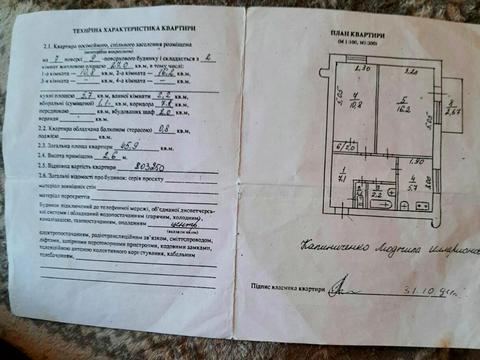 ТЕХНІЧНА ХАРАКТЕРИСТИКА КВАРТИРИ
2.1. Квартира посімейного, спільного заселення розміщена
(непотрібне викреслити)
на 2 поверсі 9 -поверхового будинку і складається з 2
кімнат житловою площею 27.0 кв.м, в тому числі:
1-а кімната — 10,8 кв.м, 2-а кімната — 16,2 кв.м,
3-а кімната — кв.м, 4-а кімната — кв.м,
кухні площею 5.7 кв.м, ванної кімнати 2.2 кв.м,
вбиральні (суміщеної) 1.1 кв.м, коридора 7.1 кв.м,
передпокою кв.м, вбудованих шаф 2.0 кв.м,
веранди кв.м.
2.2. Квартира обладнана балконом (терасою) 0,8 кв.м,
лоджією кв.м.
2.3. Загальна площа квартири 45,9 кв.м.
2.4. Висота приміщень 2,6 м.
2.5. Відновна вартість квартири 803250
2.6. Загальні відомості про будинок: серія проєкту
матеріал зовнішніх стін
матеріал перекриття
Будинок підключений до телефонної мережі, об'єднаної диспетчерської системи і обладнаний водопостачанням (гарячим, холодним),
каналізацією, газопостачанням, опаленням центр.
(вказати яким)
електропостачанням, радіотрансляційним зв'язком, сміттєпроводом,
ліфтами, шифрами переговорними пристроями, кодовими замками,
телевізійною антеною колективного користування, кабельним
телебаченням.
ПЛАН КВАРТИРИ
(М 1:100, М1:200)
2.30
3.20
4
10,8
5
16.2
5.05
8
2,67
6/2.0
1.90
1
7.1
3
2.2
4
5.7
3.00
Людмила
Підпис власника квартири
31.10.94г.